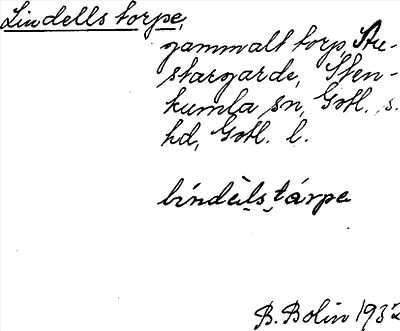 Lindells torpe,
gammalt torp, Stu-
stargarde, Sten-
kumla sn, Gotl. s.
hd, Gotl. l.
lindels tárpe
B. Bolin 1932